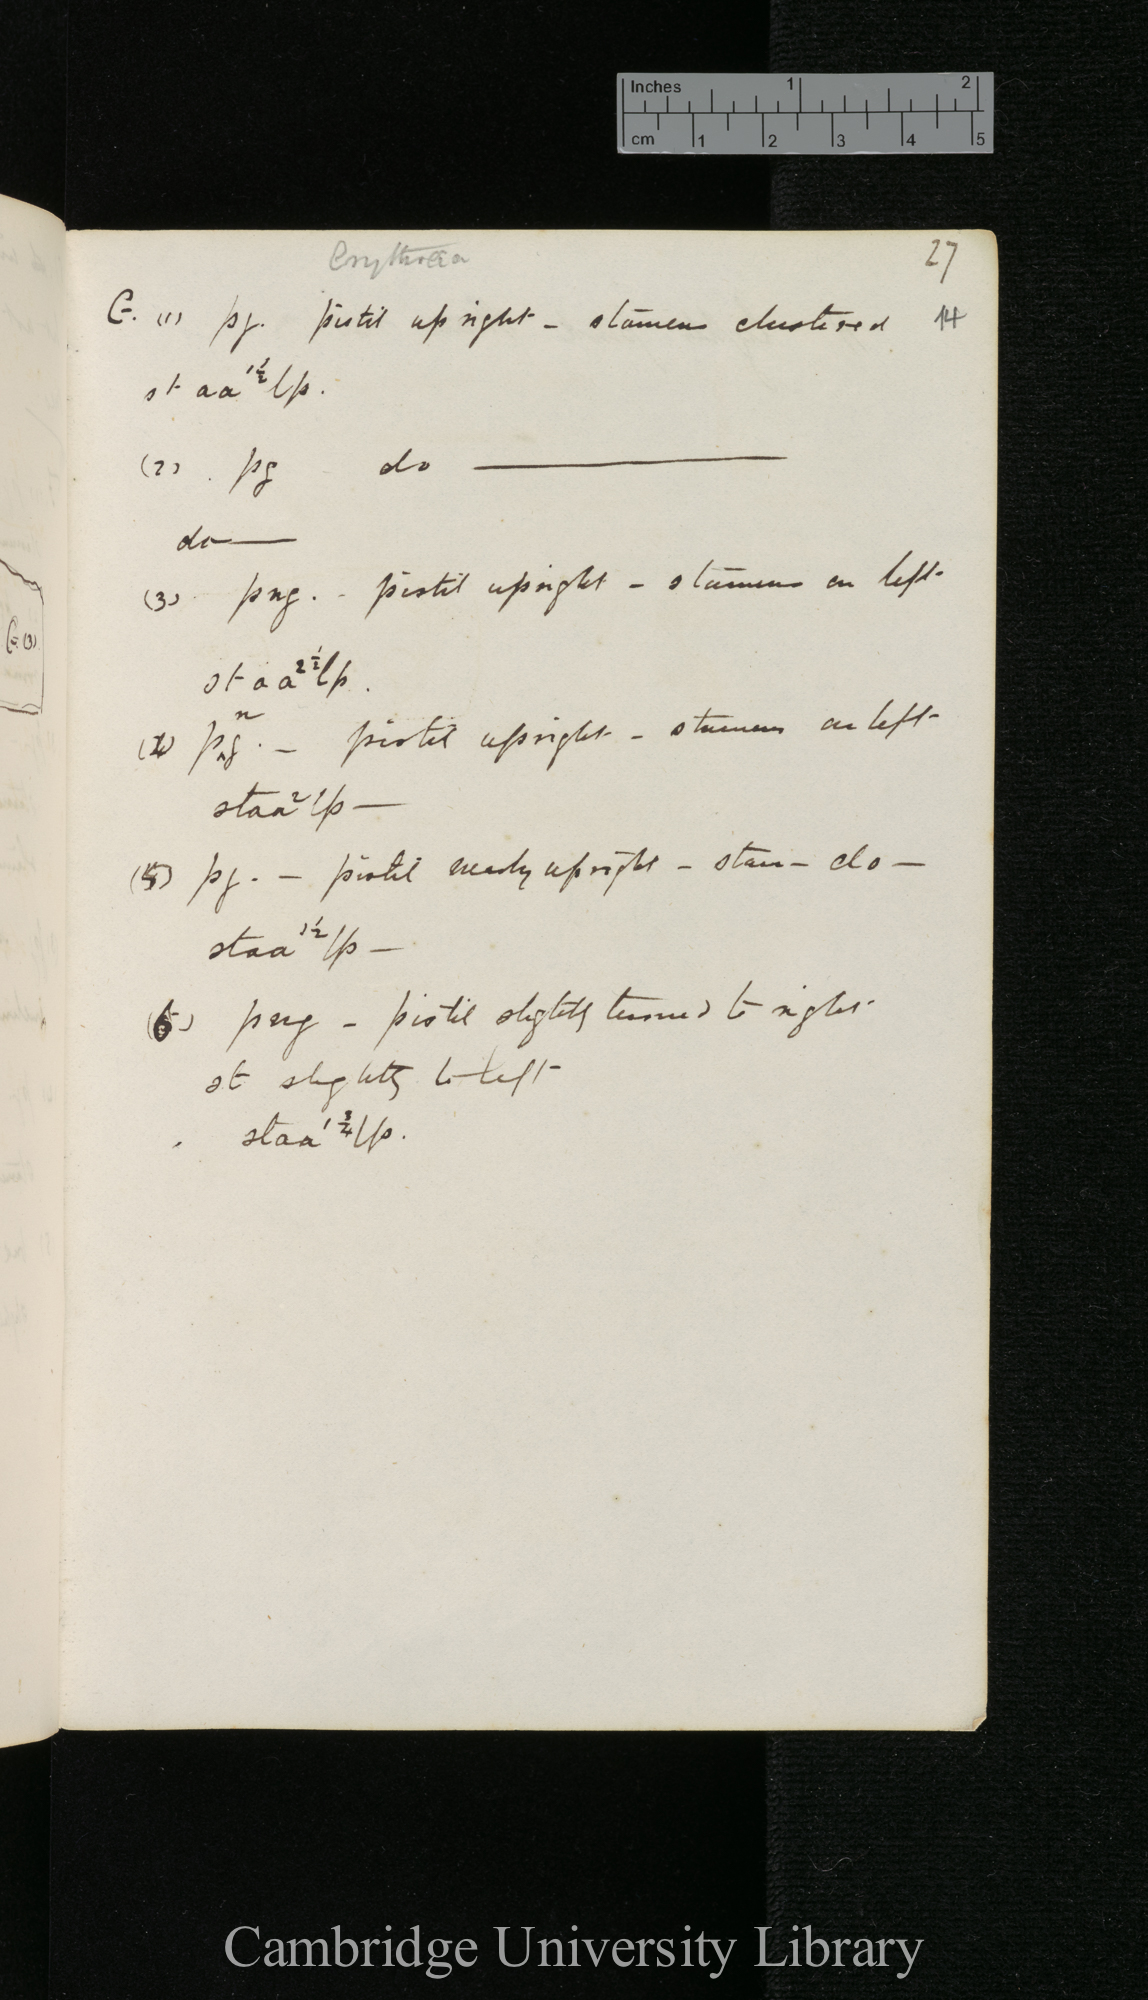 Inches 1 2
cm 1 2 3 4 5
Erythræa
27
G. (1) pg. pistil upright - stamens clustered 14
st aa 1½ lp.
(2) . pg do ———
do —
(3) png. - pistil upright - stamens on left
G (3)
st aa 2½ lp.
png. - pistil upright - stamens on left
staa 2 lp —
(5) pg. - pistil nearly upright - stam - do —
staa 1½ lp —
(6) png - pistil slightly turned to right
st slightly to left
staa 1¾ lp.
Cambridge University Library